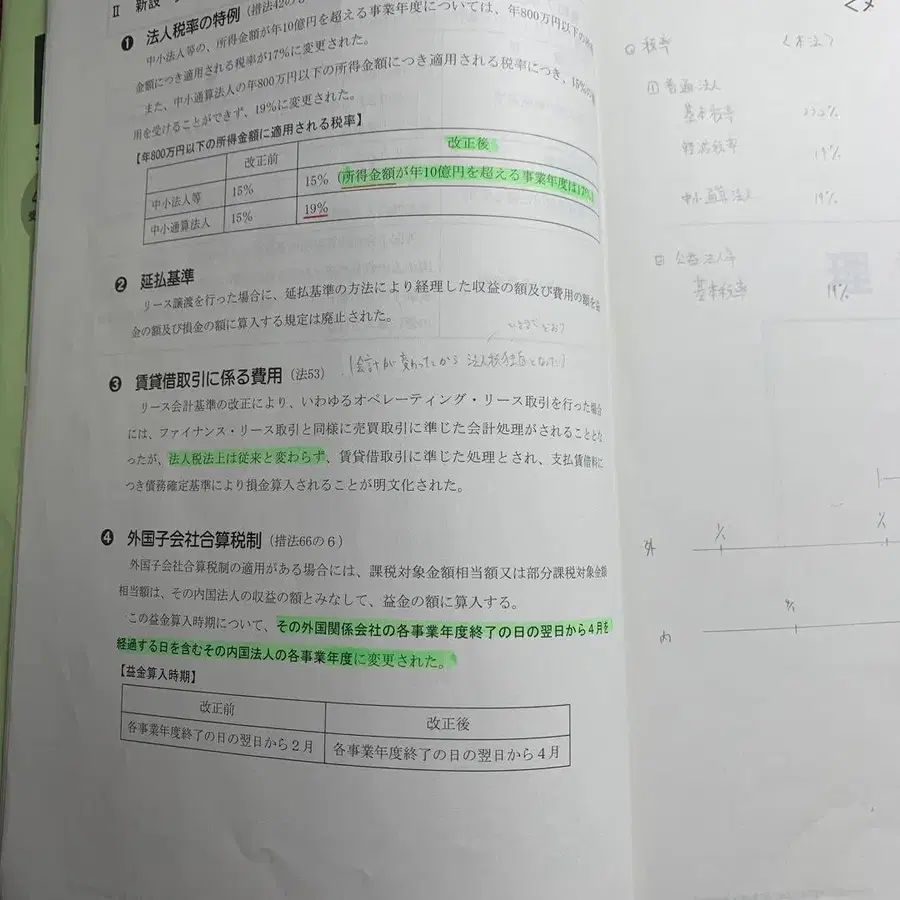 Ⅱ 新設
❶ 法人税率の特例（措法42の
中小法人等の、所得金額が年10億円を超える事業年度については、年800万円以下の
金額につき適用される税率が17%に変更された。
また、中小通算法人の年800万円以下の所得金額につき適用される税率につき、15%の
用を受けることができず、19%に変更された。
【年800万円以下の所得金額に適用される税率】
改正前 改正後
中小法人等 15% 15%（所得金額が年10億円を超える事業年度は17%）
中小通算法人 15% 19%
❷ 延払基準
リース譲渡を行った場合に、延払基準の方法により経理した収益の額及び費用の額を益
金の額及び損金の額に算入する規定は廃止された。
いままでどおり
❸ 賃貸借取引に係る費用（法53）（会計が変わったから 法人税独自となった）
リース会計基準の改正により、いわゆるオペレーティング・リース取引を行った場合
には、ファイナンス・リース取引と同様に売買取引に準じた会計処理がされることとな
ったが、法人税法上は従来と変わらず、賃貸借取引に準じた処理とされ、支払賃借料に
つき債務確定基準により損金算入されることが明文化された。
❹ 外国子会社合算税制（措法66の6）
外国子会社合算税制の適用がある場合には、課税対象金額相当額又は部分課税対象金額
相当額は、その内国法人の収益の額とみなして、益金の額に算入する。
この益金算入時期について、その外国関係会社の各事業年度終了の日の翌日から4月を
経過する日を含むその内国法人の各事業年度に変更された。
【益金算入時期】
改正前 改正後
各事業年度終了の日の翌日から2月 各事業年度終了の日の翌日から4月
税率 〈本法〉
普通法人
基本税率 23.2%
軽減税率 19%
中小通算法人 19%
公益法人等
基本税率 19%
理
外
内